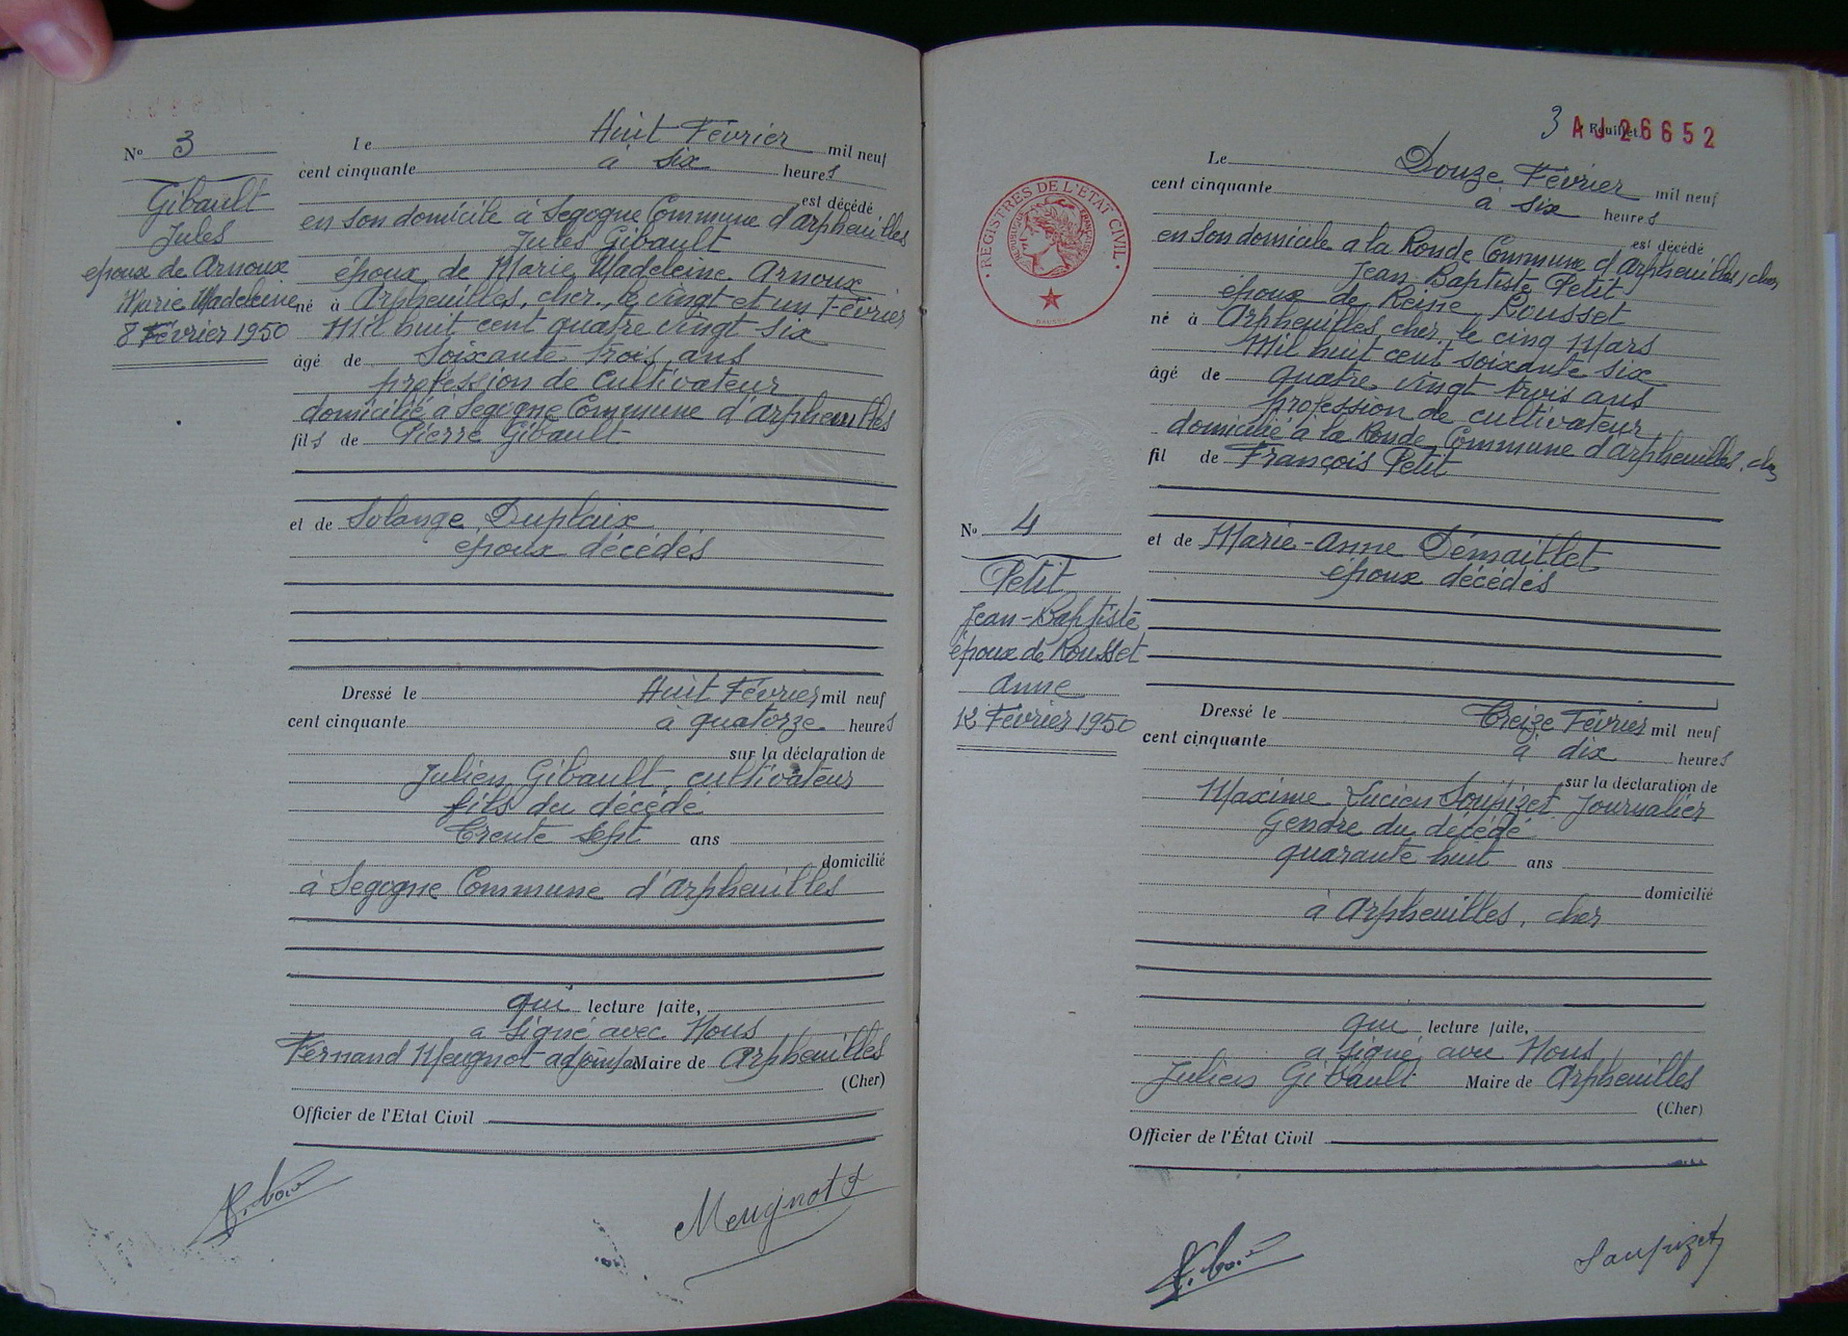 No 3
Gibault
Jules
époux de Arnoux
Marie Madeleine
8 Février 1950
Le Huit Février mil neuf
cent cinquante à six heures
est décédé
en son domicile à Segogne Commune d'Arpheuilles
Jules Gibault
époux de Marie Madeleine Arnoux
né à Arpheuilles, cher, le vingt et un Février
Mil huit cent quatre vingt six
âgé de Soixante trois ans
profession de cultivateur
domicilié à Segogne Commune d'Arpheuilles
fils de Pierre Gibault
et de Solange Duplaix
époux décédés
Dressé le Huit Février mil neuf
cent cinquante à quatorze heures
sur la déclaration de
Julien Gibault, cultivateur
fils du décédé
Trente sept ans
domicilié
à Segogne Commune d'Arpheuilles
qui lecture faite,
a signé avec Nous
Fernand Meugnot adjoint Maire de Arpheuilles
(Cher)
Officier de l'Etat Civil
Meugnot F
3 Feuillet AJ26652
REGISTRES DE L'ETAT CIVIL
REPUBLIQUE FRANÇAISE
No 4
Petit
Jean-Baptiste
époux de Rousset
Anne
12 Février 1950
Le Douze Février mil neuf
cent cinquante à six heures
est décédé
en son domicile à la Ronde Commune d'Arpheuilles, cher
Jean Baptiste Petit
époux de Reine Rousset
né à Arpheuilles, cher, le cinq Mars
Mil huit cent soixante six
âgé de quatre vingt trois ans
profession de cultivateur
domicilié à la Ronde Commune d'Arpheuilles, cher
fil de François Petit
et de Marie-Anne Démaillet
époux décédés
Dressé le Treize Février mil neuf
cent cinquante à dix heures
sur la déclaration de
Maxime Lucien Soupizet Journalier
Gendre du décédé
quarante huit ans
domicilié
à Arpheuilles, cher
qui lecture faite,
a signé avec Nous
Julien Gibault Maire de Arpheuilles
(Cher)
Officier de l'État Civil
Soupizet